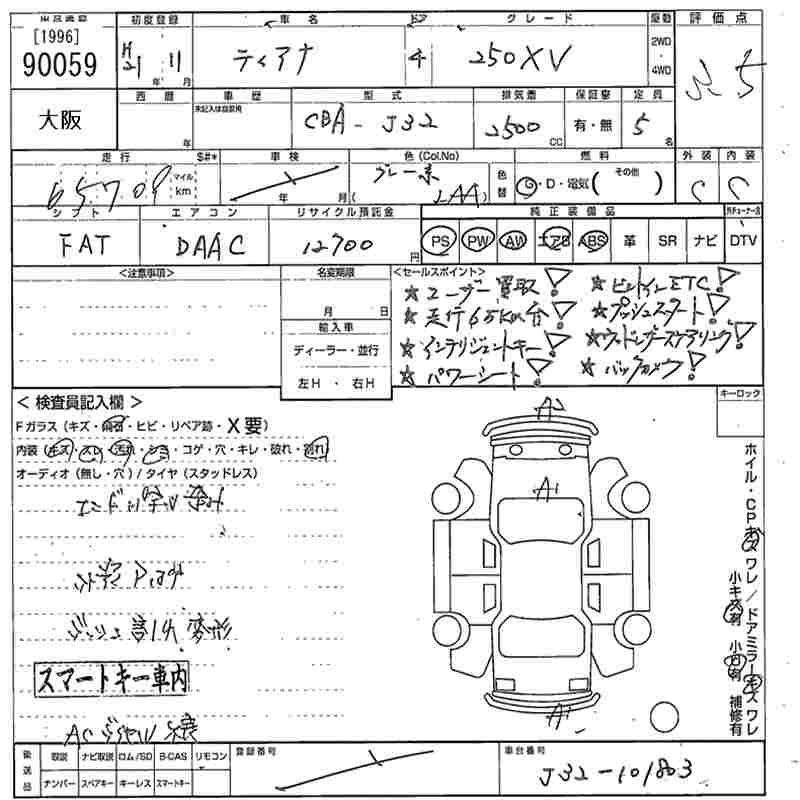 [1996]
90059
大阪
初度登録
H21 年 11 月
車名
ティアナ
ドア
4
グレード
250XV
駆動
2WD
4WD
評価点
西暦
年
車歴
未記入は自家用
型式
CBA-J32
排気量
2500 CC
保証書
有・無
定員
5 名
走行
$#*
65709
マイル
km
車検
年 月
色 (Col.No)
グレー系
(LAA)
色替
燃料
G・D・電気( その他 )
外装
C
内装
C
シフト
FAT
エアコン
DAAC
リサイクル預託金
12700 円
純正装備品
PS PW AW エアB ABS 革 SR ナビ DTV
<注意事項>
名変期限
月 日
輸入車
ディーラー・並行
左H ・ 右H
<セールスポイント>
★ユーザー買取!
★ビルトインETC!
★走行65Km台!
★プッシュスタート!
★インテリジェントキー!
★ウッドレザーステアリング!
★パワーシート!
★バックカメラ!
< 検査員記入欄 >
Fガラス (キズ・飛石・ヒビ・リペア跡・X要)
内装 (キズ・スレ・汚れ・シミ・コゲ・穴・キレ・破れ・割れ)
オーディオ (無し・穴) / タイヤ (スタッドレス)
スマートキー車内
キーロック
A2
A1
A1
ホイル・CPキズワレ/ドアミラーキズワレ
小キズ有 小凹有 補修有
後送品
取説 ナビ取説 ロム/SD B-CAS リモコン
ナンバー スペアキー キーレス スマートキー
登録番号
車台番号
J32-101803